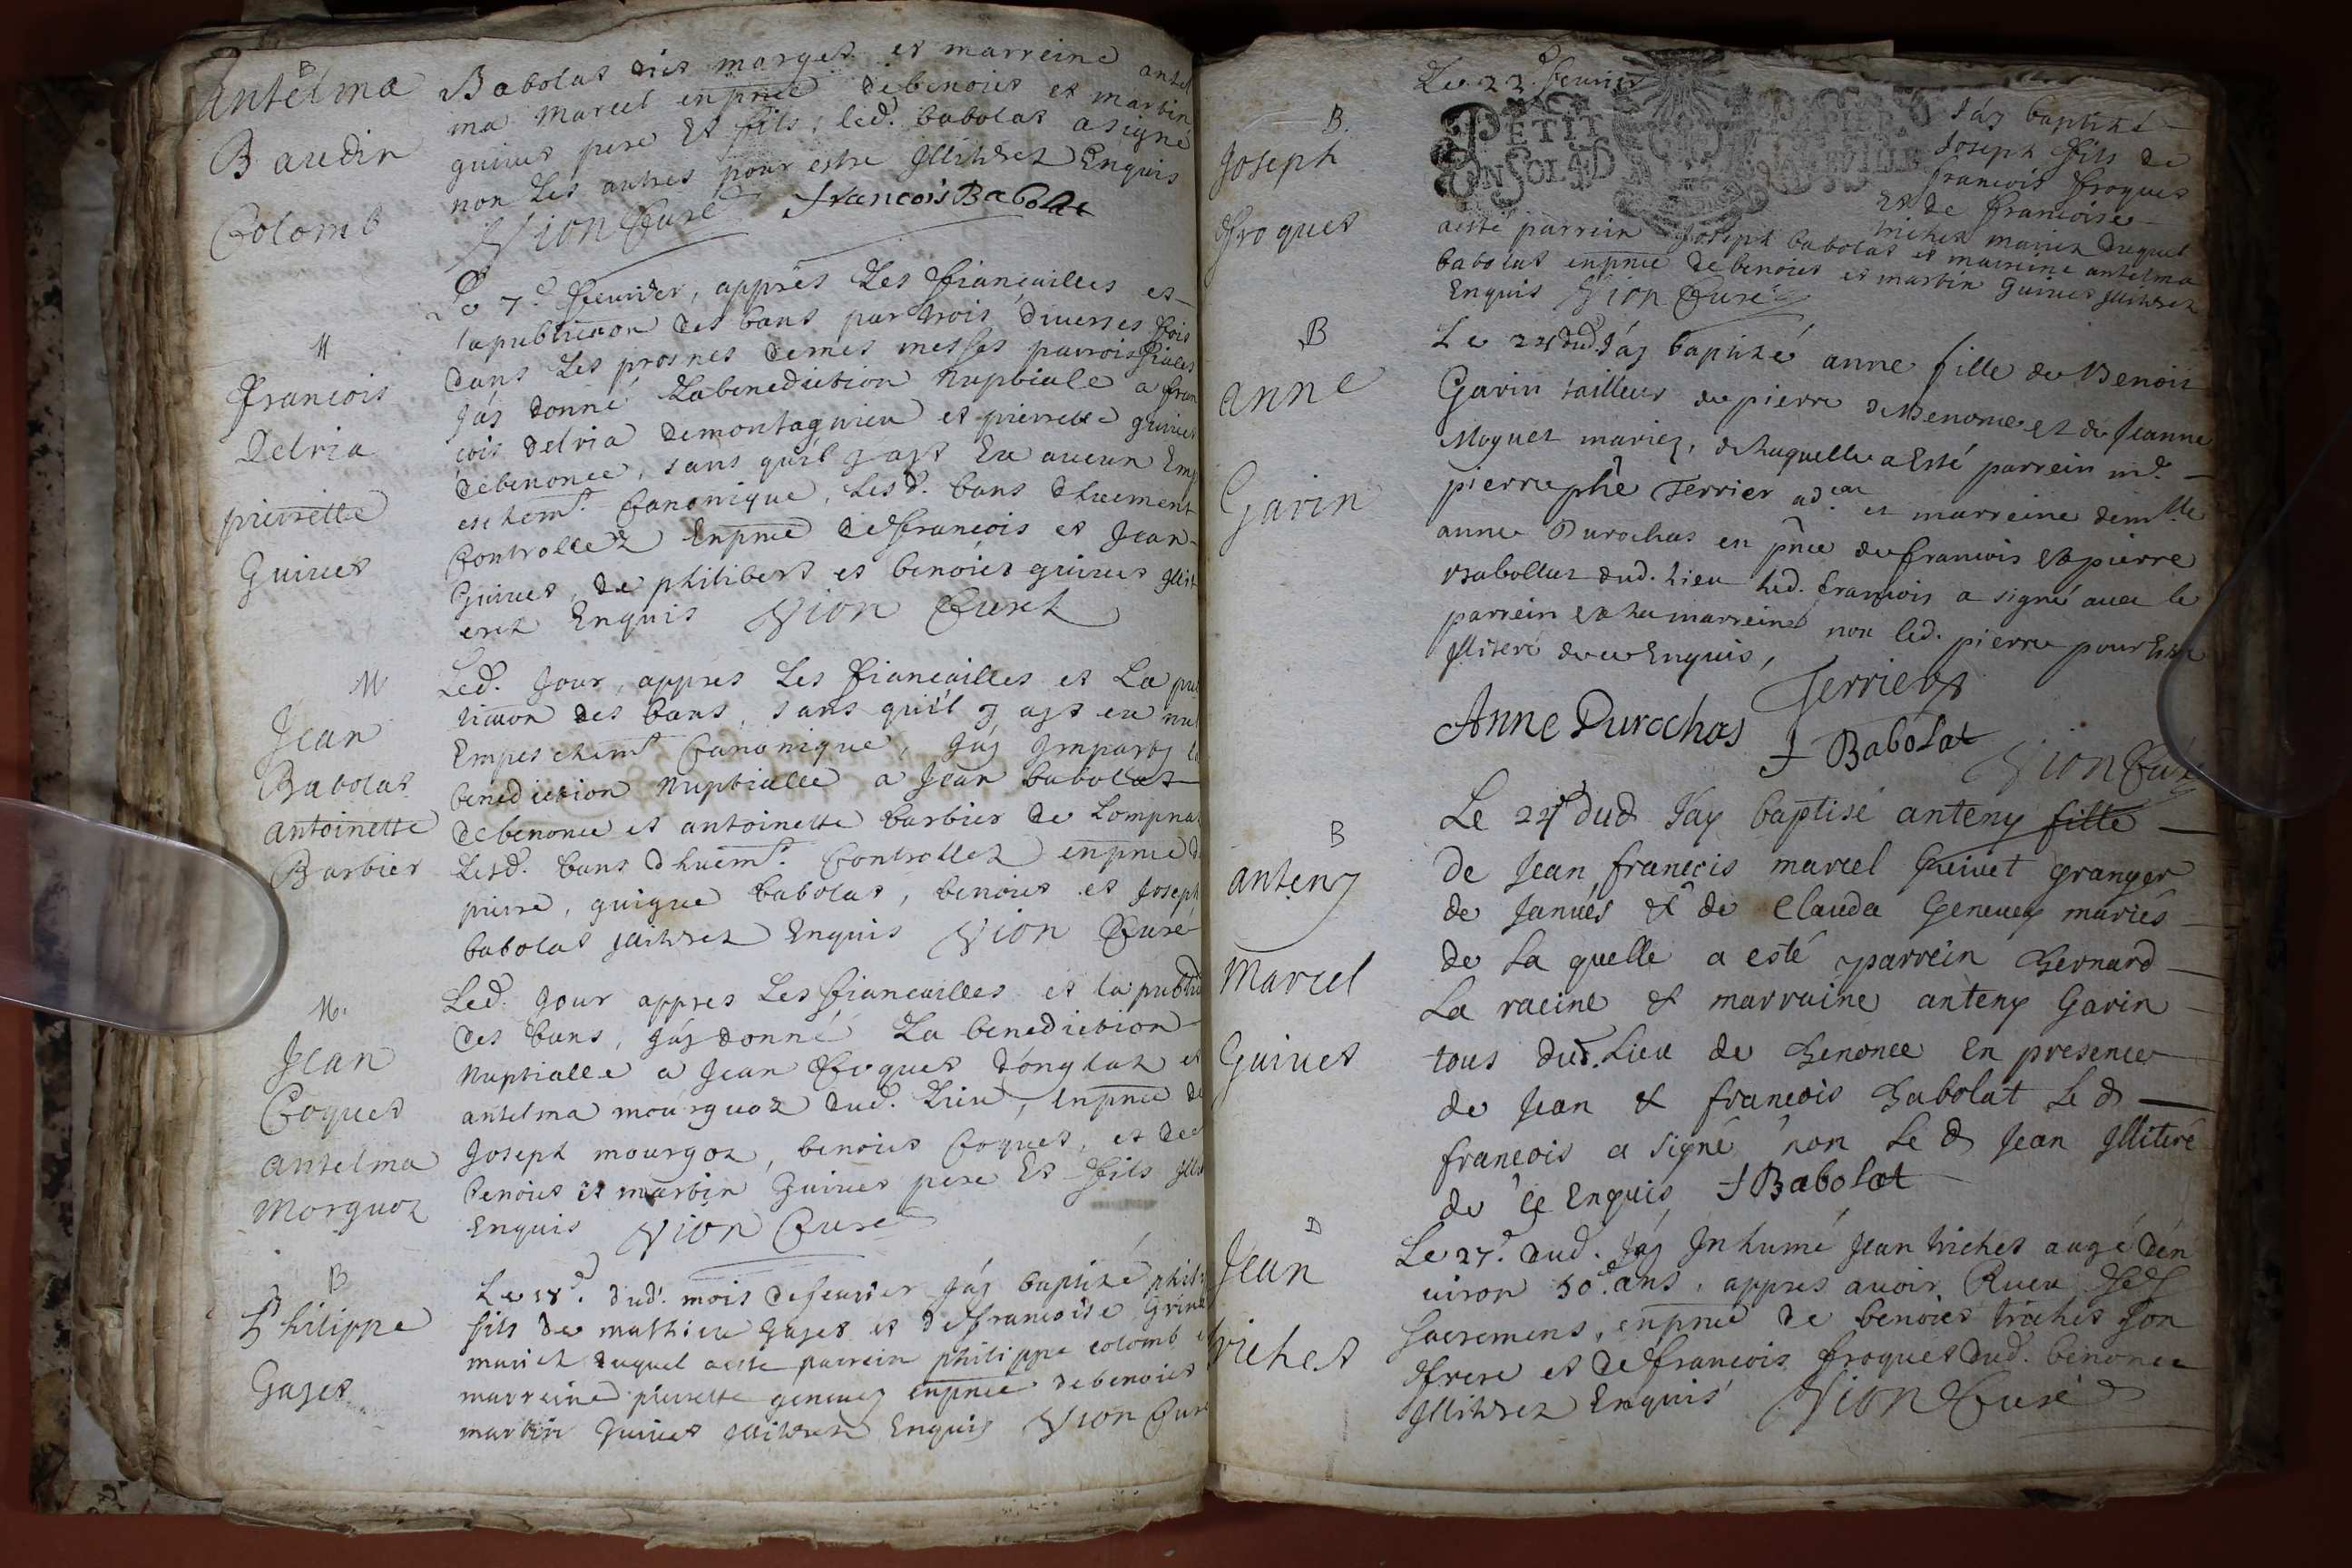 B
antelma
Baudin
Colomb
Babolat dict marget et marreine antel
ma marcel enpnce de benoict et martin
guinet pere et fils, led. babolat a signé
non les autres pour estre Illitérez Enquis
Vion Curé francois Babolat
M
francois
Delvia
pierrette
Guinet
Le 7e feuvrier, apprés Les fiançailles et
la publicaon des bans par trois diverses fois
dans Les prosnes de mes messes parroissiales
Jáy donné La benediction nuptiale a fran
cois delvia de montagnieu et pierrette guinet
de benonce, sans qu'il y ayt Eu aucun Emp
eschemt. Canonique, Lesd. bans dhuement
Controllez Enpnce de francois et Jean
Guinet, de philibert et benoict guinet Illit
erez Enquis Vion Curé
M
Jean
Babolat
antoinette
Barbier
Led. Jour, appres Les fiancailles et La pub
licaon des bans, sans qu'il y ayt eu nul
Empeschemt Canonique, Jáy Imparty la
benediction nuptialle a Jean babolat
de benonce et antoinette barbier de Lompnas
Lesd. bans dhuemt. Controllez enpnce de
pierre, guigue babolat, benoict et Joseph
babolat Illitérez Enquis Vion Curé
M.
Jean
Coquet
antelma
Morguoz
Led. Jour appres Les fiancailles et la public
des bans, Jáy donné La benediction
Nuptialle a Jean Coquet d'onglas et
antelma mourguoz dud. Lieu, Enpnce de
Joseph mourgoz, benoict Coquet, et de
benoict et martin Guinet pere Et fils Illit
Enquis Vion Curé
B
Philippe
Gaget
Le 18e. dud. mois de feuvrier Jáy baptizé phili
fils de mathieu Gaget et de francoise Grin
mariez duquel a esté parrein philippe colomb et
marreine pierrette geneuey enpnce de benoict
martin Guinet Illitérez Enquis Vion Curé
Le 22e. feuvrier
PETIT PAPIER
UN SOL
B.
Joseph
froquet
Jáy baptizé
Joseph fils de
francois froquet
Et de francoise
trichet mariez duquel
a esté parrein Joseph babolat et marreine antelma
babolat enpnce de benoict et martin Guinet Illitérez
Enquis Vion Curé
B
anne
Garin
Le 24 dud. Jáy baptizé anne fille de Benoit
Garin tailleur de pierre de Benonce et de Jeanne
Moguet mariez, de Laquelle a Esté parrein mr.
pierre phe Terrier adcat et marreine demlle
anne Durochas en pnce de francois et pierre
Babollat dud. Lieu led. francois a signé avec le
parrein et La marreine non led. pierre pour Estre
Illiteré de ce Enquis,
Terrier
Anne Durochas
F Babolat Vion Curé
B
anteny
Marcel
Guinet
Le 24 dud Jay baptisé anteny fille
de Jean francois marcel Guinet granger
de Januës & de Clauda Geneuey mariés
de La quelle a esté parrein Bernard
La racine & marraine anteny Garin
tous dud. Lieu de Benonce En presence
de Jean & francois Babolat Le d
francois a signé non Le d Jean Illiteré
de ce Enquis F Babolat
D
Jean
trichet
Le 27e. dud. Jáy Inhumé Jean trichet augé d'en
viron 50. ans, appres avoir Receu Ses
Sacremens, enpnce de benoict trichet Son
frere et de francois froquet dud. benonce
Illitérez Enquis Vion Curé